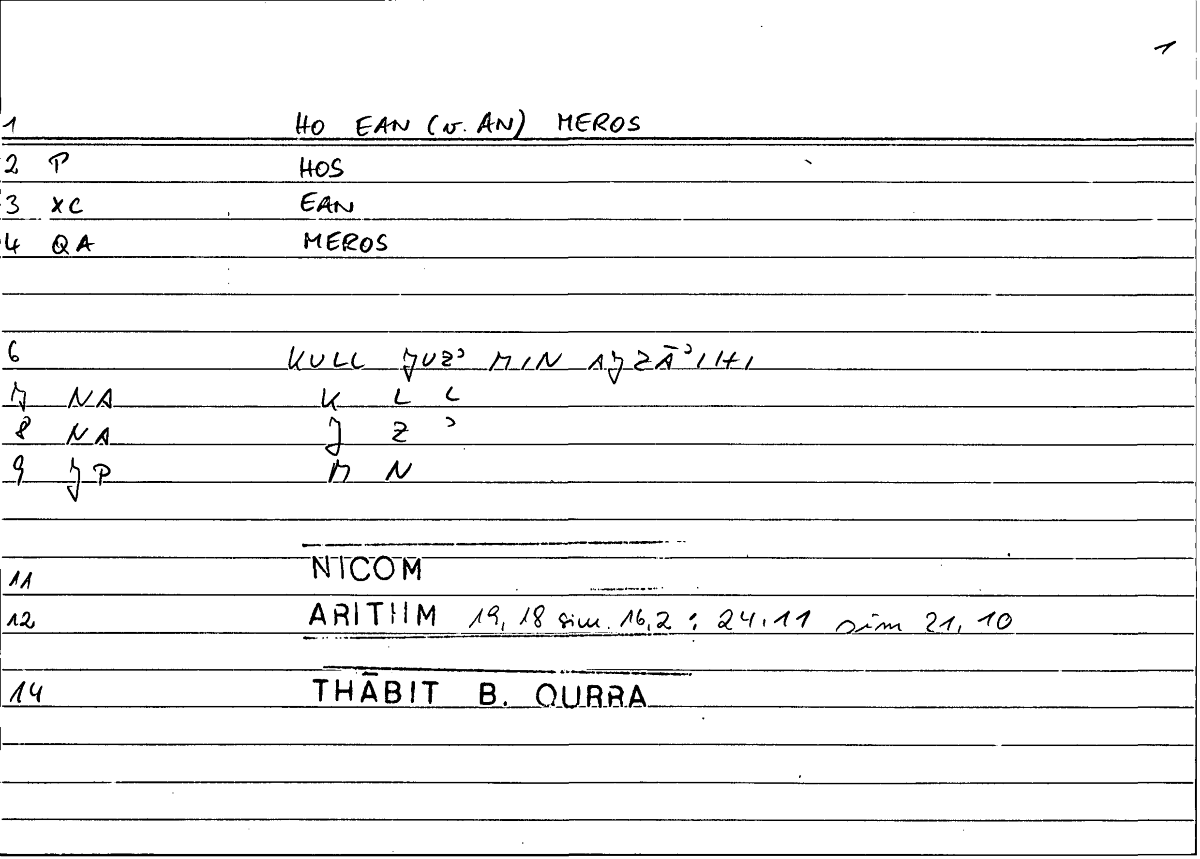 1
1 HO EAN (v. AN) MEROS
2 P HOS
3 XC EAN
4 QA MEROS
6 KULL JUZʾ MIN AJZĀʾIHI
7 NA K L L
8 NA J Z ʾ
9 JP M N
11 NICOM
12 ARITHM 19,18 sim. 16,2 : 24.11 sim 21,10
14 THĀBIT B. QURRA